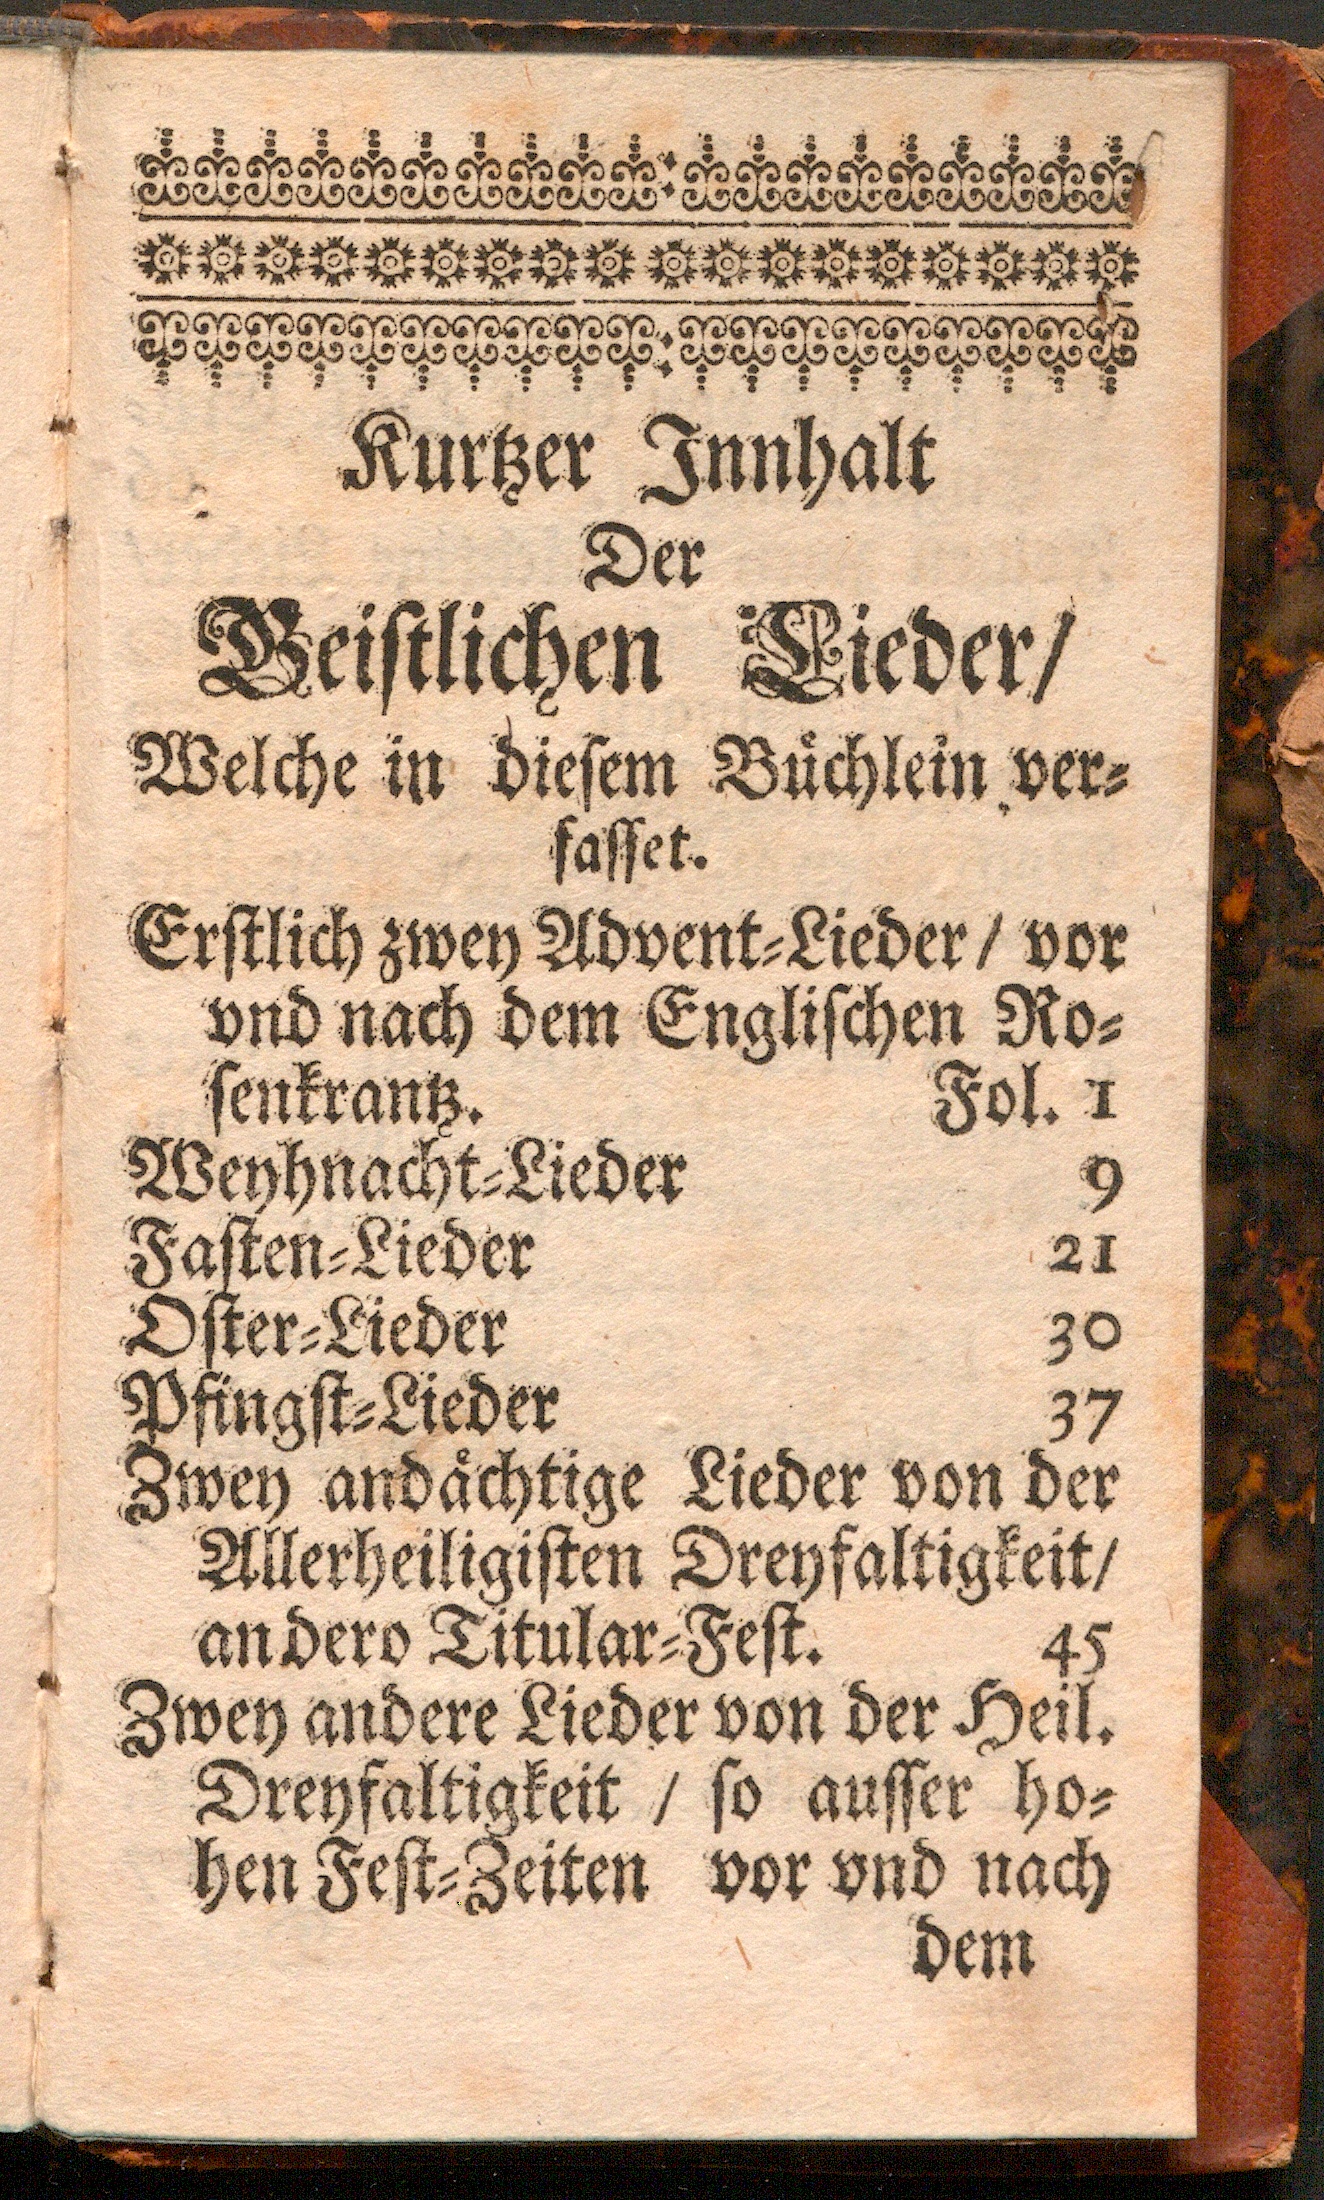 Kurtzer Innhalt
Der
Geistlichen Lieder/
Welche in diesem Bůchlein ver-
fasset.
Erstlich zwey Advent-Lieder / vor
vnd nach dem Englischen Ro-
senkrantz. Fol. 1
Weyhnacht-Lieder 9
Fasten-Lieder 21
Oster-Lieder 30
Pfingst-Lieder 37
Zwey andåchtige Lieder von der
Allerheiligisten Dreyfaltigkeit/
an dero Titular-Fest. 45
Zwey andere Lieder von der Heil.
Dreyfaltigkeit / so ausser ho-
hen Fest-Zeiten vor vnd nach
dem